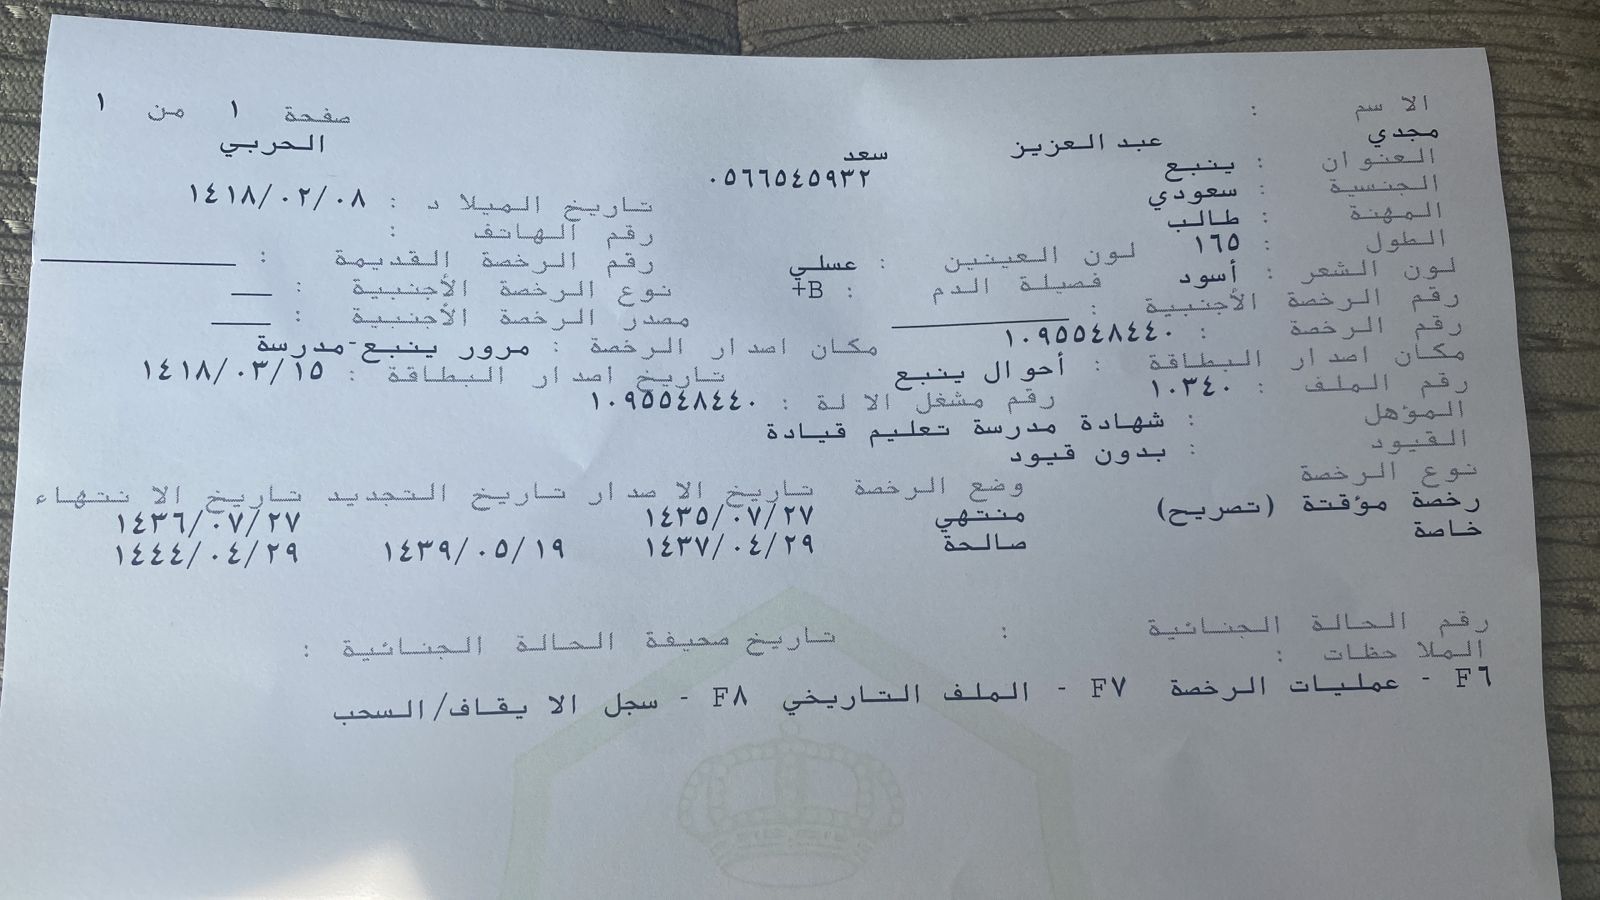 الاسم : صفحة ١ من ١
مجدي عبد العزيز سعد الحربي
العنوان : ينبع ٠٥٦٦٥٤٥٩٣٢
الجنسية : سعودي تاريخ الميلاد : ١٤١٨/٠٢/٠٨
المهنة : طالب رقم الهاتف :
الطول : ١٦٥ لون العينين : عسلي رقم الرخصة القديمة : ــــــــــــ
لون الشعر : أسود فصيلة الدم : B+ نوع الرخصة الأجنبية : ــــ
رقم الرخصة الأجنبية : ــــــــــــ مصدر الرخصة الأجنبية : ــــ
رقم الرخصة : ١٠٩٥٥٤٨٤٤٠ مكان اصدار الرخصة : مرور ينبع-مدرسة
مكان اصدار البطاقة : أحوال ينبع تاريخ اصدار البطاقة : ١٤١٨/٠٣/١٥
رقم الملف : ١٠٣٤٠ رقم مشغل الالة : ١٠٩٥٥٤٨٤٤٠
المؤهل : شهادة مدرسة تعليم قيادة
القيود : بدون قيود
نوع الرخصة وضع الرخصة تاريخ الاصدار تاريخ التجديد تاريخ الانتهاء
رخصة مؤقتة (تصريح) منتهي ١٤٣٥/٠٧/٢٧ ١٤٣٦/٠٧/٢٧
خاصة صالحة ١٤٣٧/٠٤/٢٩ ١٤٣٩/٠٥/١٩ ١٤٤٤/٠٤/٢٩
رقم الحالة الجنائية : تاريخ صحيفة الحالة الجنائية :
الملاحظات :
F٦ - عمليات الرخصة F٧ - الملف التاريخي F٨ - سجل الايقاف/السحب